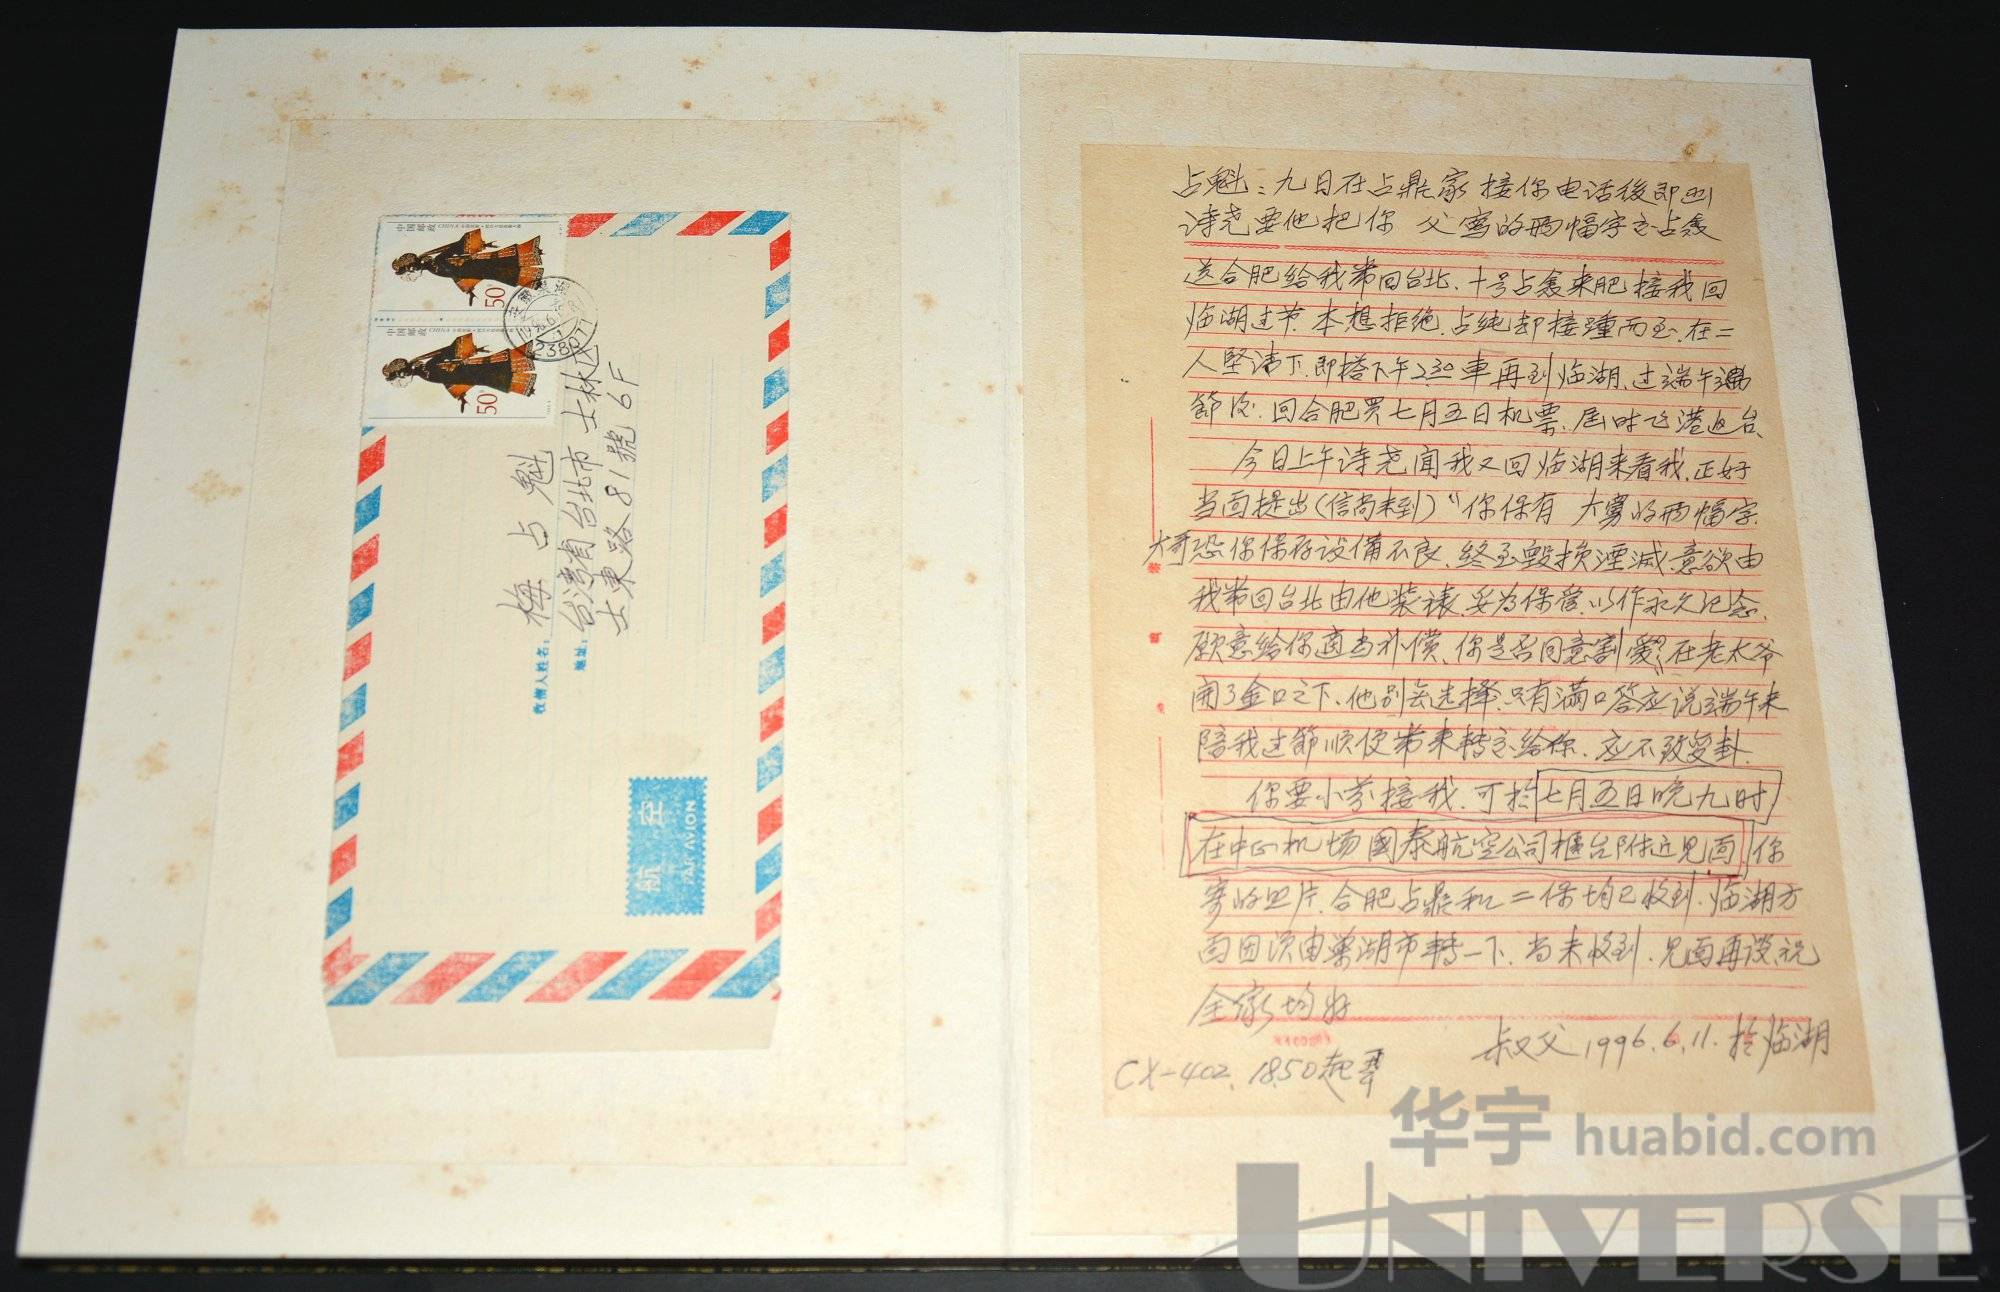 中国邮政
CHINA
50
中国邮政
CHINA
50
238071
收信人姓名：梅占魁
地址：台湾省台北市士林区
士東路81號6F
航空
PAR AVION
占魁：九日在占鼎家接你电话後即
诗尧要他把你 父寫的两幅字交占
送合肥给我带回台北，十号占 来肥接我回
临湖过节，本想拒绝，占纯却接踵而至，在二
人坚请下，即搭下午230車再到临湖，过端午
節後，回合肥買七月五日机票，届时飞港返台、
今日上午诗尧闻我又回临湖来看我，正好
当面提出（信尚未到）“你保有 大舅的两幅字，
大哥恐你保存设備不良，终至毁损湮滅，意欲由
我带回台北由他装裱，妥为保管，以作永久记念，
願意给你適当补償，你是否同意割爱？”在老太爷
開了金口之下，他别无选择，只有满口答应说端午来
陪我过節顺便带来转交给你，应不致变卦。
你要小芬接我，可於七月五日晚九时
在中正机场國泰航空公司櫃台附近见面，你
寄的照片，合肥占鼎和二保均已收到，临湖方
面因须由巢湖市轉一下，尚未收到，见面再谈，祝
全家均好
叔父1996.6.11.於临湖
CX-402，1850起飛
华宇 huabid.com
UNIVERSE